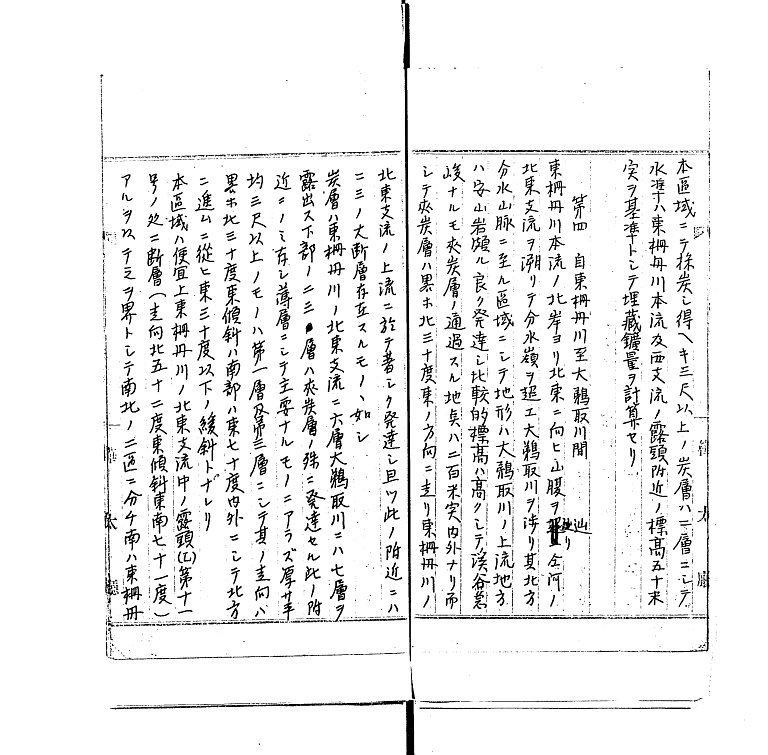 本區域ニテ採炭シ得ヘキ三尺以上ノ炭層ハ二層ニシテ
水準ハ東柵丹川本流及西支流ノ露頭附近ノ標高五十米
突ヲ基準トシテ埋藏鑛量ヲ計算セリ
第四 自東柵丹川至大鵜取川間
東柵丹川本流ノ北岸ヨリ北東ニ向ヒ山腹ヲ辿リ仝河ノ
北東支流ヲ溯リテ分水嶺ヲ超エ大鵜取川ヲ渉リ其北方
分水山脈ニ至ル區域ニシテ地形ハ大鵜取川ノ上流地方
ハ安山岩頗ル良ク発達シ比較的標高ハ高クシテ渓谷急
峻ナルモ夾炭層ノ通過スル地点ハ二百米突内外ナリ而
シテ夾炭層ハ畧ホ北三十度東ノ方向ニ走リ東柵丹川ノ
北東支流ノ上流ニ於テ著シク発達シ且ツ此ノ附近ニハ
二三ノ大断層存在スルモノヽ如シ
炭層ハ東柵丹川ノ北東支流ニ六層大鵜取川ニハ七層ヲ
露出ス下部ノ二三層ハ夾炭層ノ殊ニ発達セル此ノ附
近ニノミ存シ薄層ニシテ主要ナルモノニアラズ厚サ平
均三尺以上ノモノハ第一層及第三層ニシテ其ノ走向ハ
畧ホ北三十度東傾斜ハ南部ハ東七十度内外ニシテ北方
ニ進ムニ從ヒ東三十度以下ノ緩斜トナレリ
本區域ハ便宜上東柵丹川ノ北東支流中ノ露頭(L)第十一
号ノ処ニ断層(走向北五十二度東傾斜東南七十一度)
アルヲ以テ之ヲ界トシテ南北ノ二區ニ分チ南ハ東柵丹
樺太廳
樺太廳